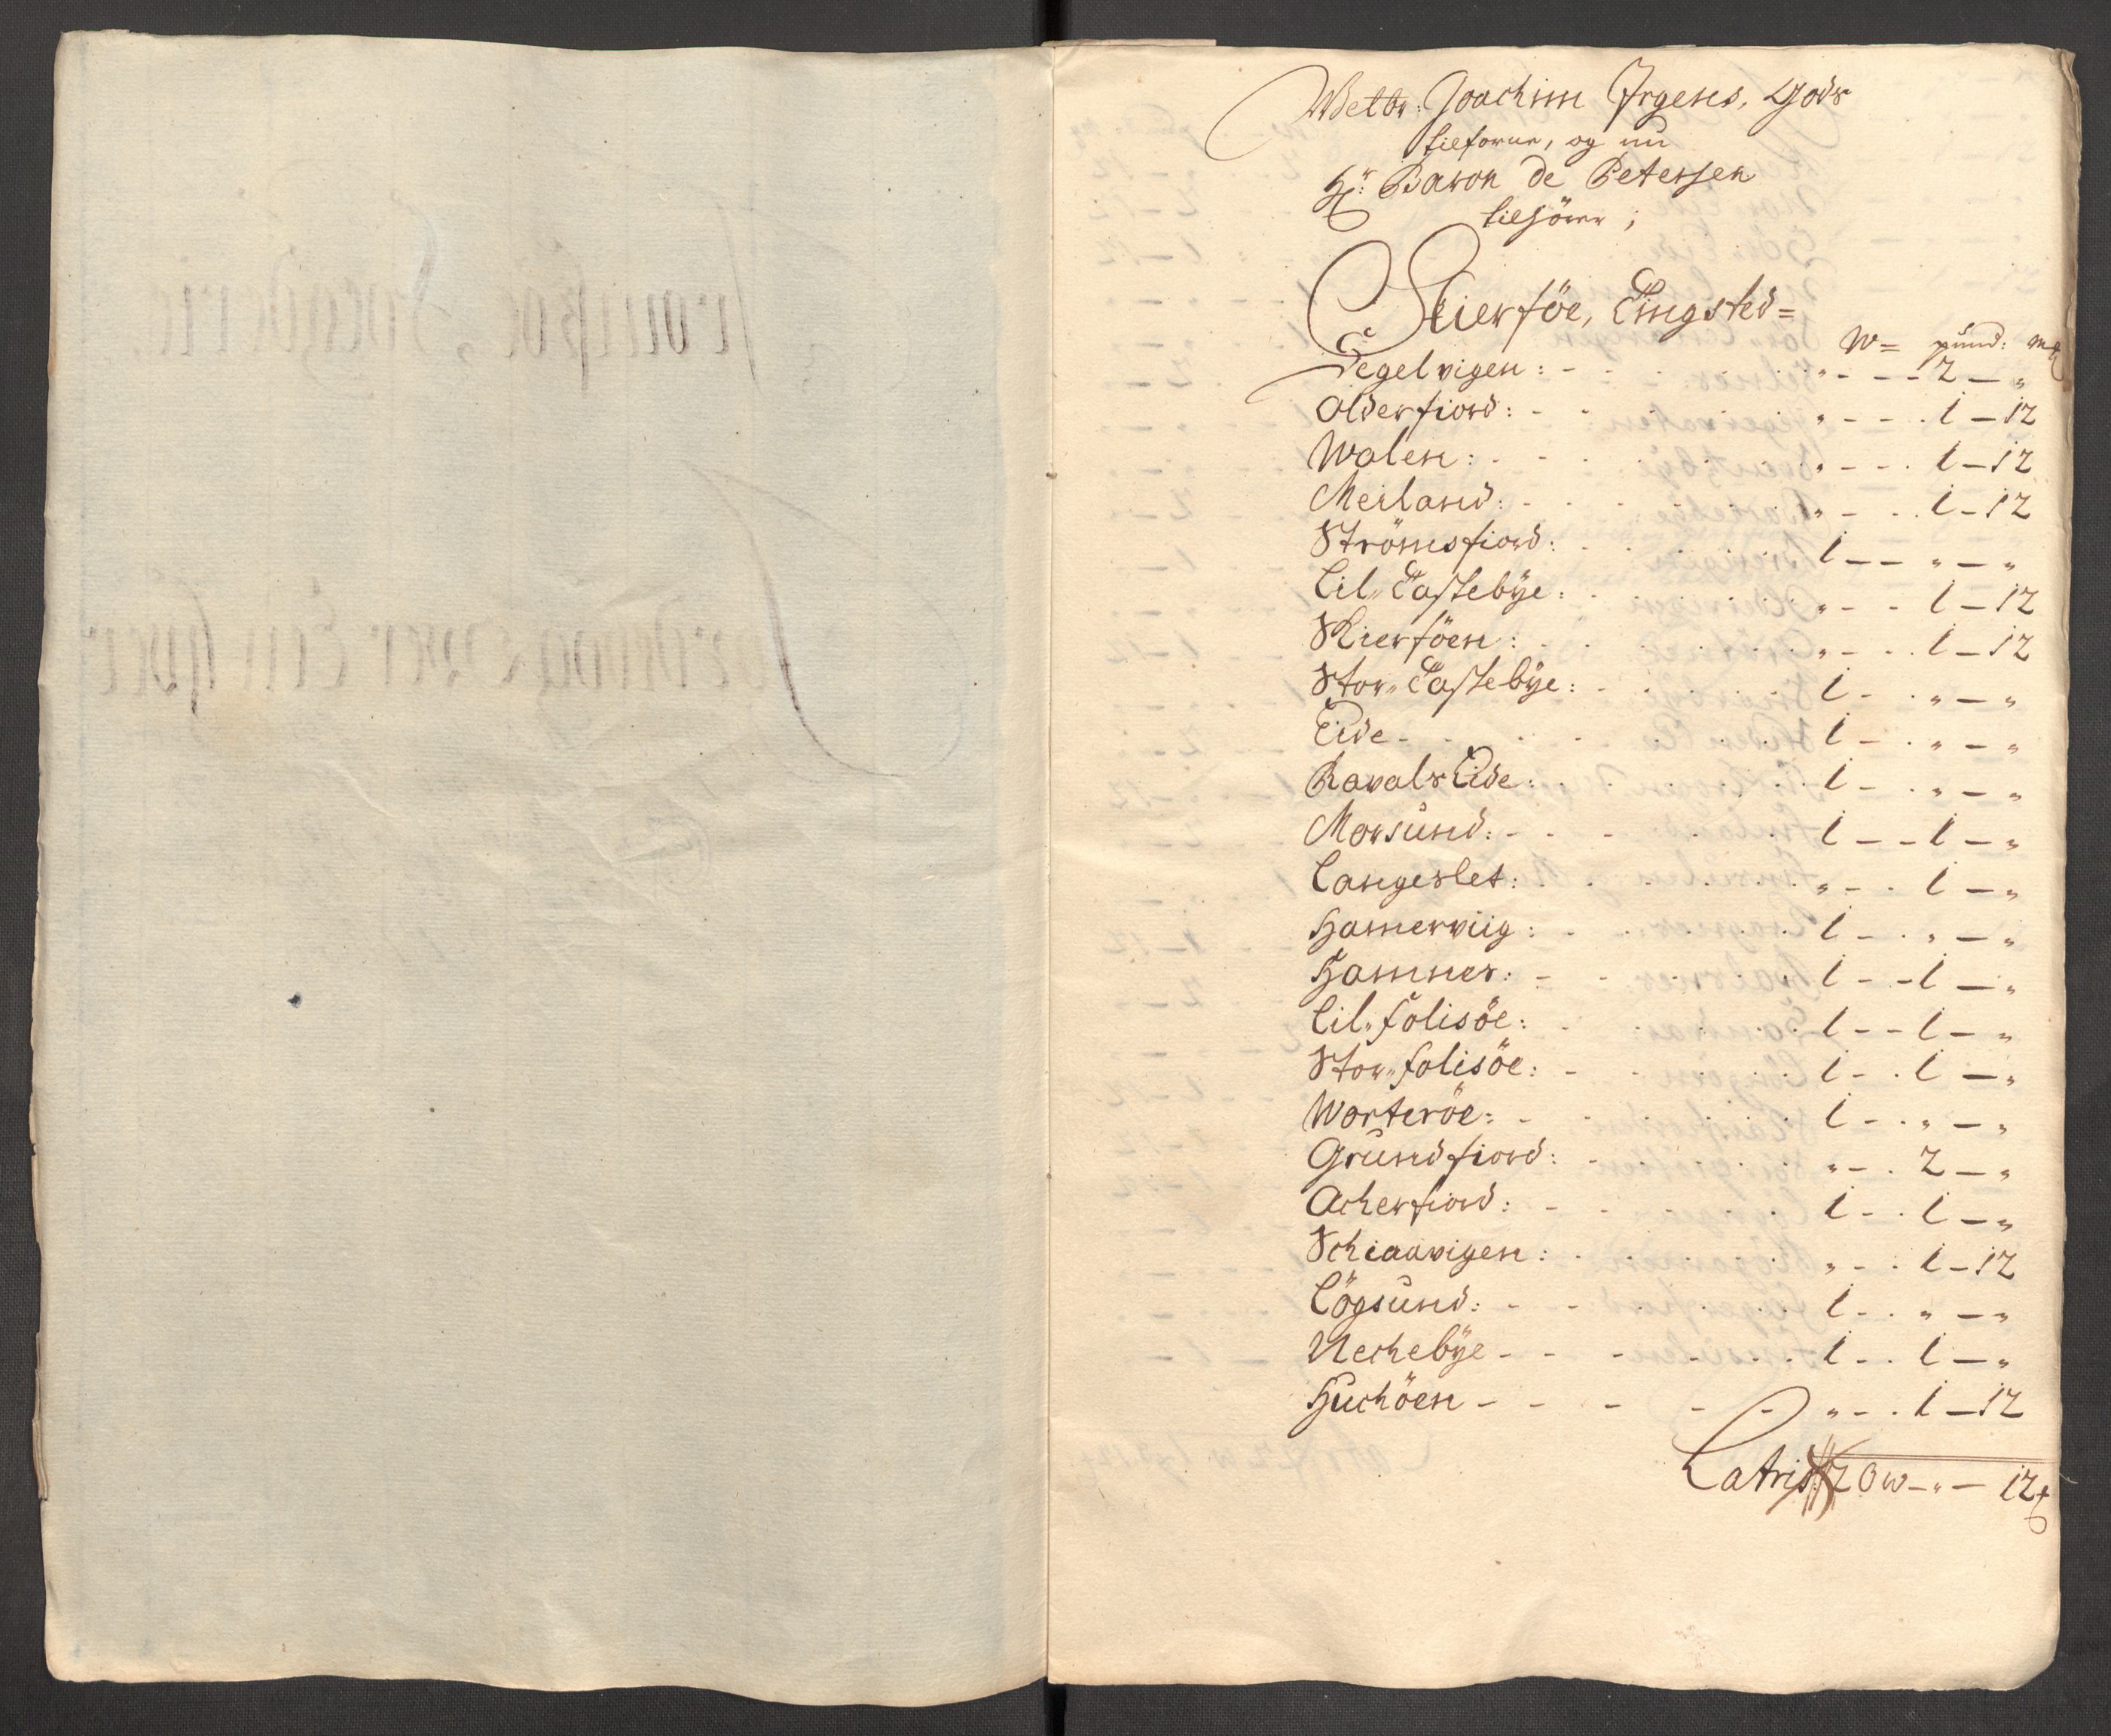 Welbr: Joachim Irgens, Gods
tilforne, og nu
Hr: Baron de Petersen
tilhörer;
Skierföe, Tingsted=
W= pund: mk
Segelvigen: - - - " - - - 2 - "
Olderfiord: - - " - - - 1 - 12
Walen: - - " - - - 1 - 12
Meiland: - - " - - 1 - 12
Strömsfiord: - - 1 - - " - "
Lil" Tastebÿe: - - " - - 1 - 12
Skierföen: - - " - - 1 - 12
Stor" Tastebÿe: - - 1 - " - "
Eide - - 1 - " - "
Ravals Eide: - - 1 - " - "
Marsund: - - 1 - - 1 - "
Langeslet: - - " - - 1 - "
Hamerviig: - - 1 - " - "
Hamnes: - - 1 - - 1 - "
Lil" Folisöe: - - 1 - - 1 - "
Stor" Folisöe: - - 1 - - 1 - "
Worteröe: - - 1 - - " - "
Grundfiord: - - " - - 2 - "
Acherfiord: - - 1 - - 1 - "
Schiaavigen: - - " - - 1 - 12
Lögsund: - - 1 - - " - "
Uechebÿe - - 1 - - 1 - "
Huchöen - - " - - 1 - 12
Latris 20 w - " - 12